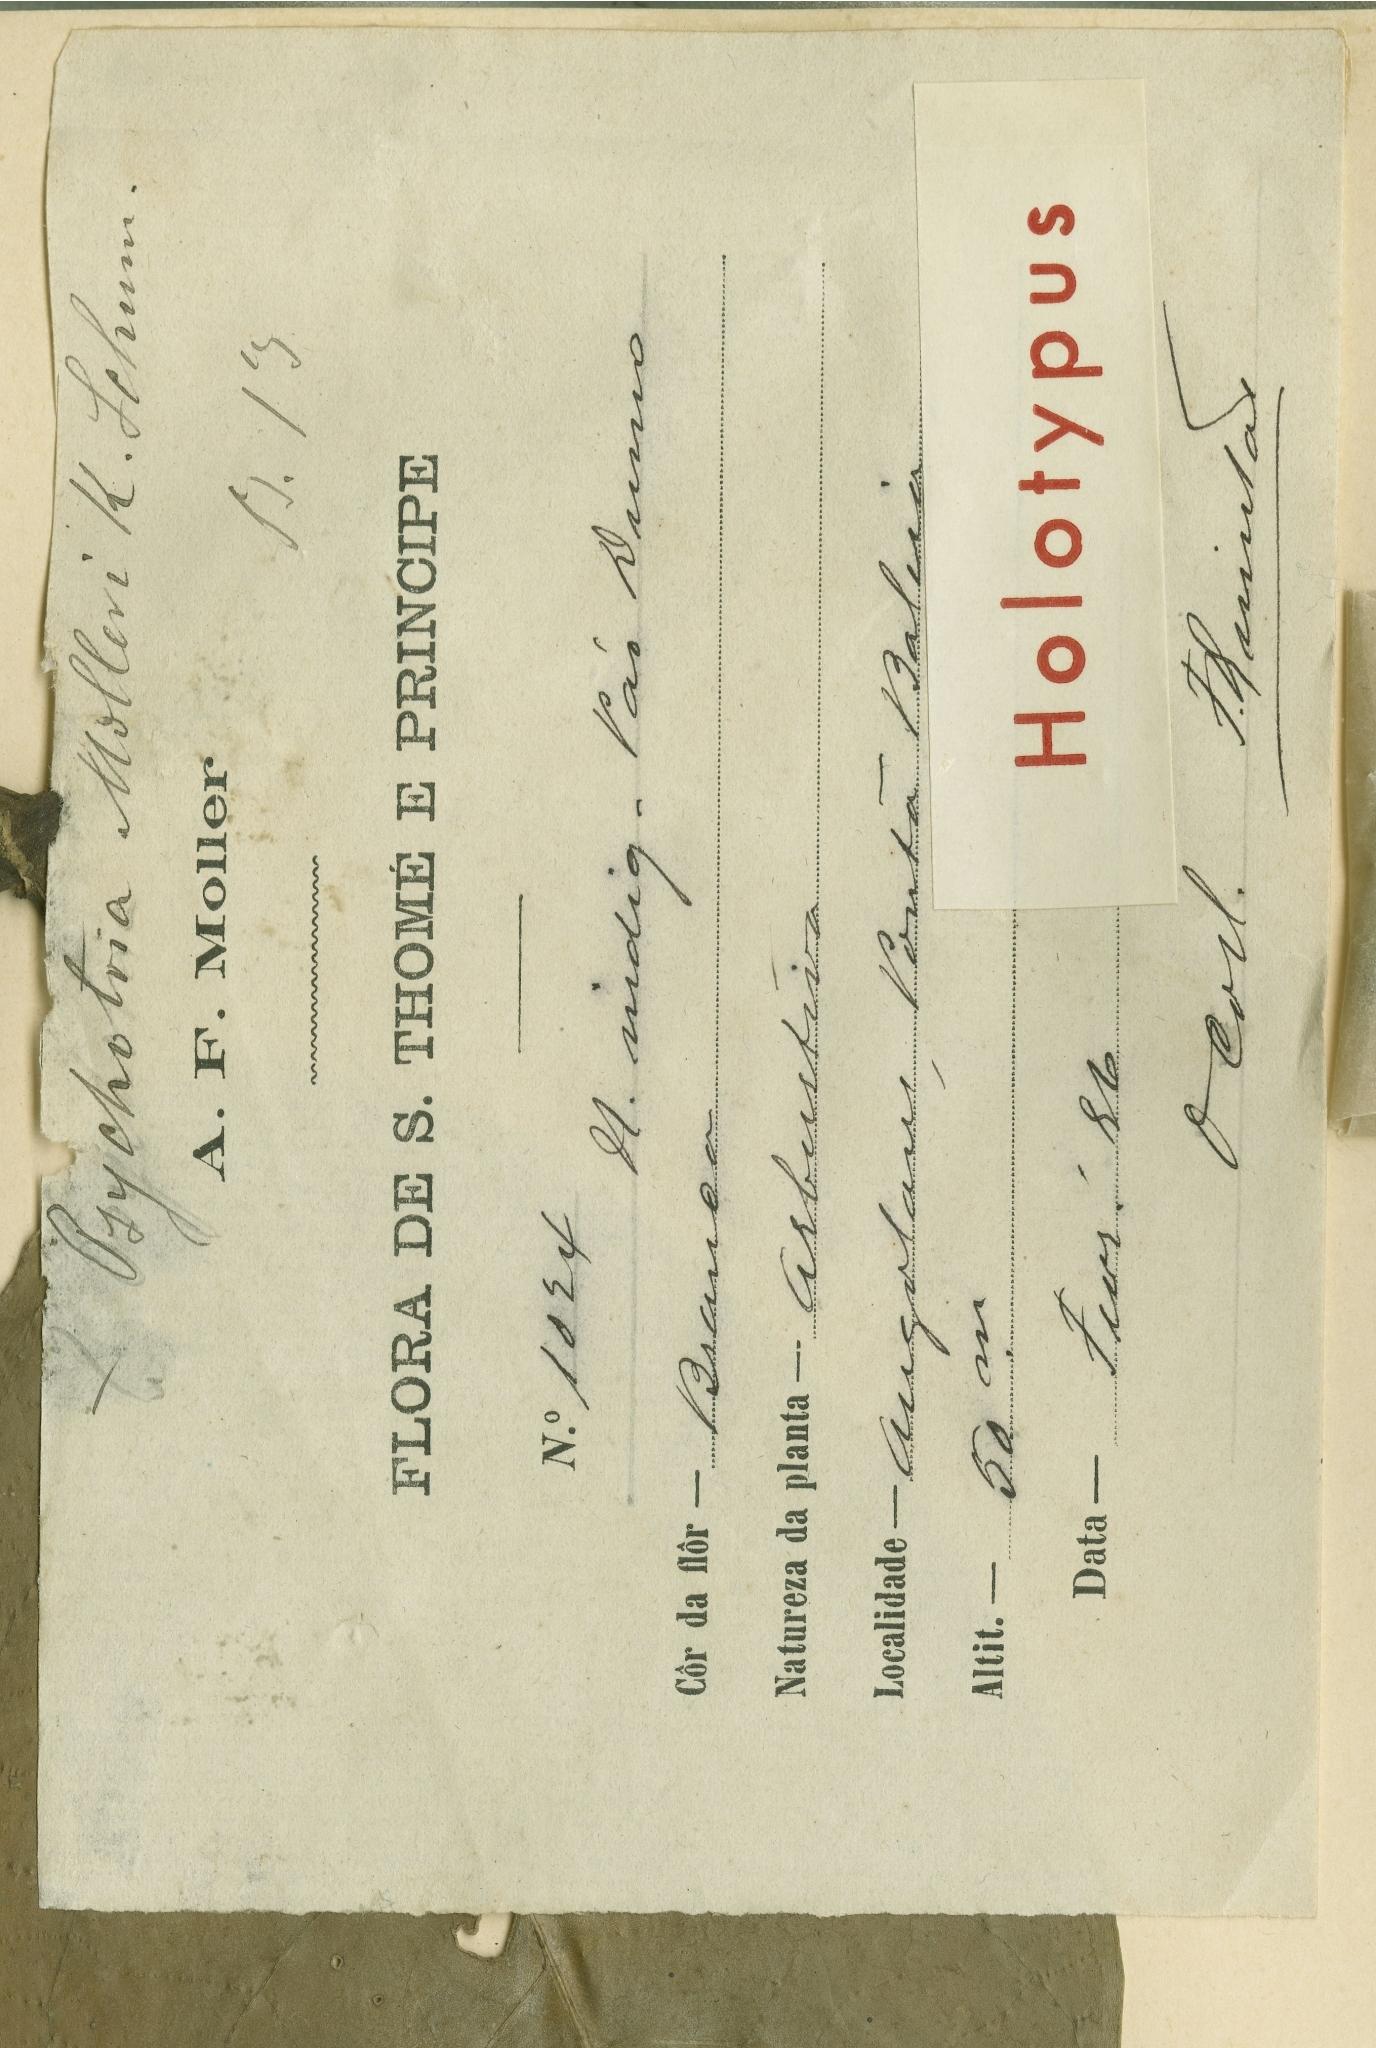 Psychotria Molleri K. Schum.
A. F. Moller
B. 13
FLORA DE S. THOMÉ E PRINCIPE
N.º 1024
N. indig. Páo Dumo
Côr da flôr — Branca
Natureza da planta — Arbustiva
Localidade — Angolares, Porto
Altit. — 50 m
Data —
Holotypus
O Col. F. Quintas